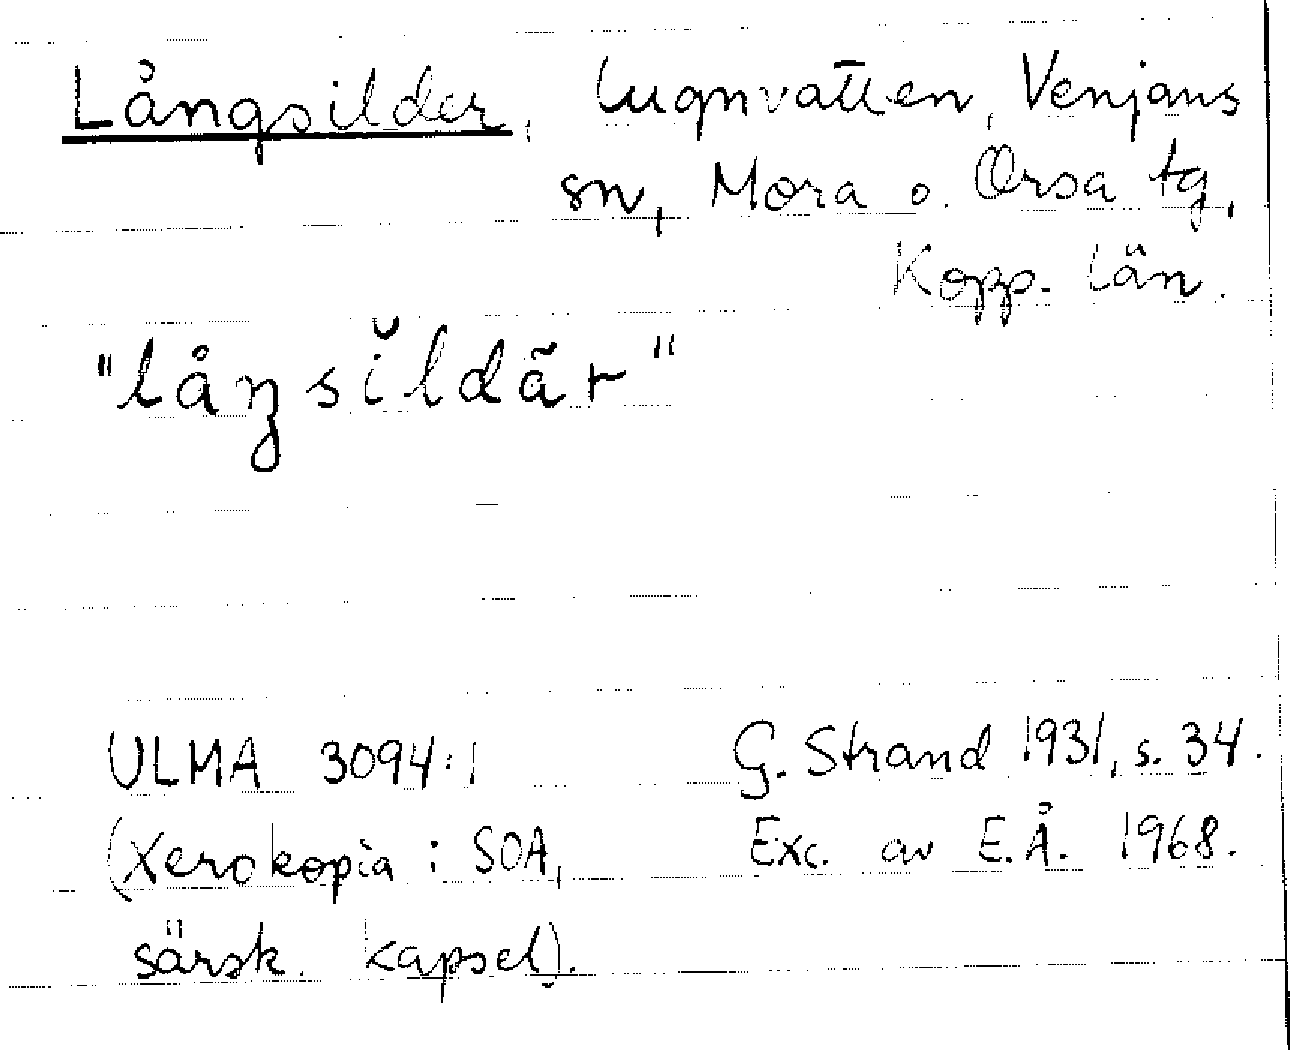 Långsilder, Lugnvatten, Venjans
sn, Mora o. Orsa tg,
Kopp. län.
"låŋsĭldãr"
ULMA 3094:1 G. Strand 1931, s. 34.
(Xerokopia i SOA, Exc. av E.Å. 1968.
särsk. kapsel).